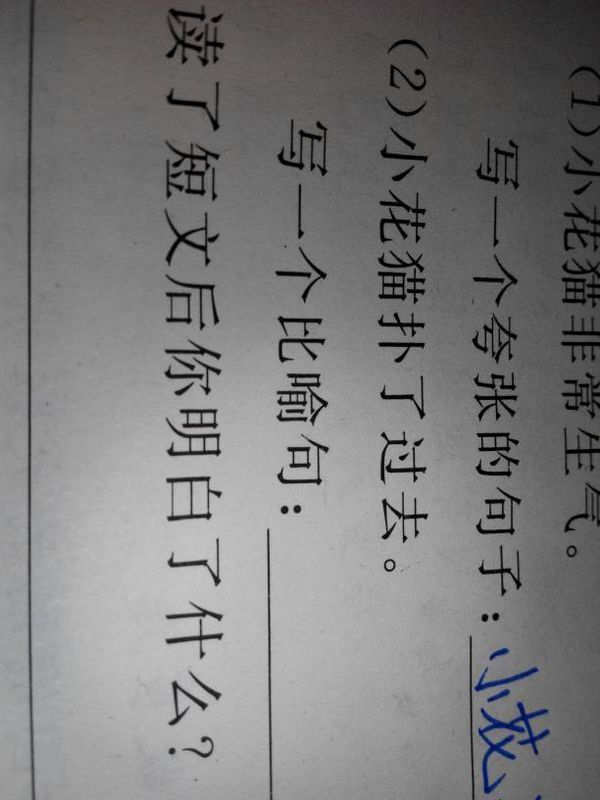 (1)小花猫非常生气。
写一个夸张的句子：小花
(2)小花猫扑了过去。
写一个比喻句：
读了短文后你明白了什么？